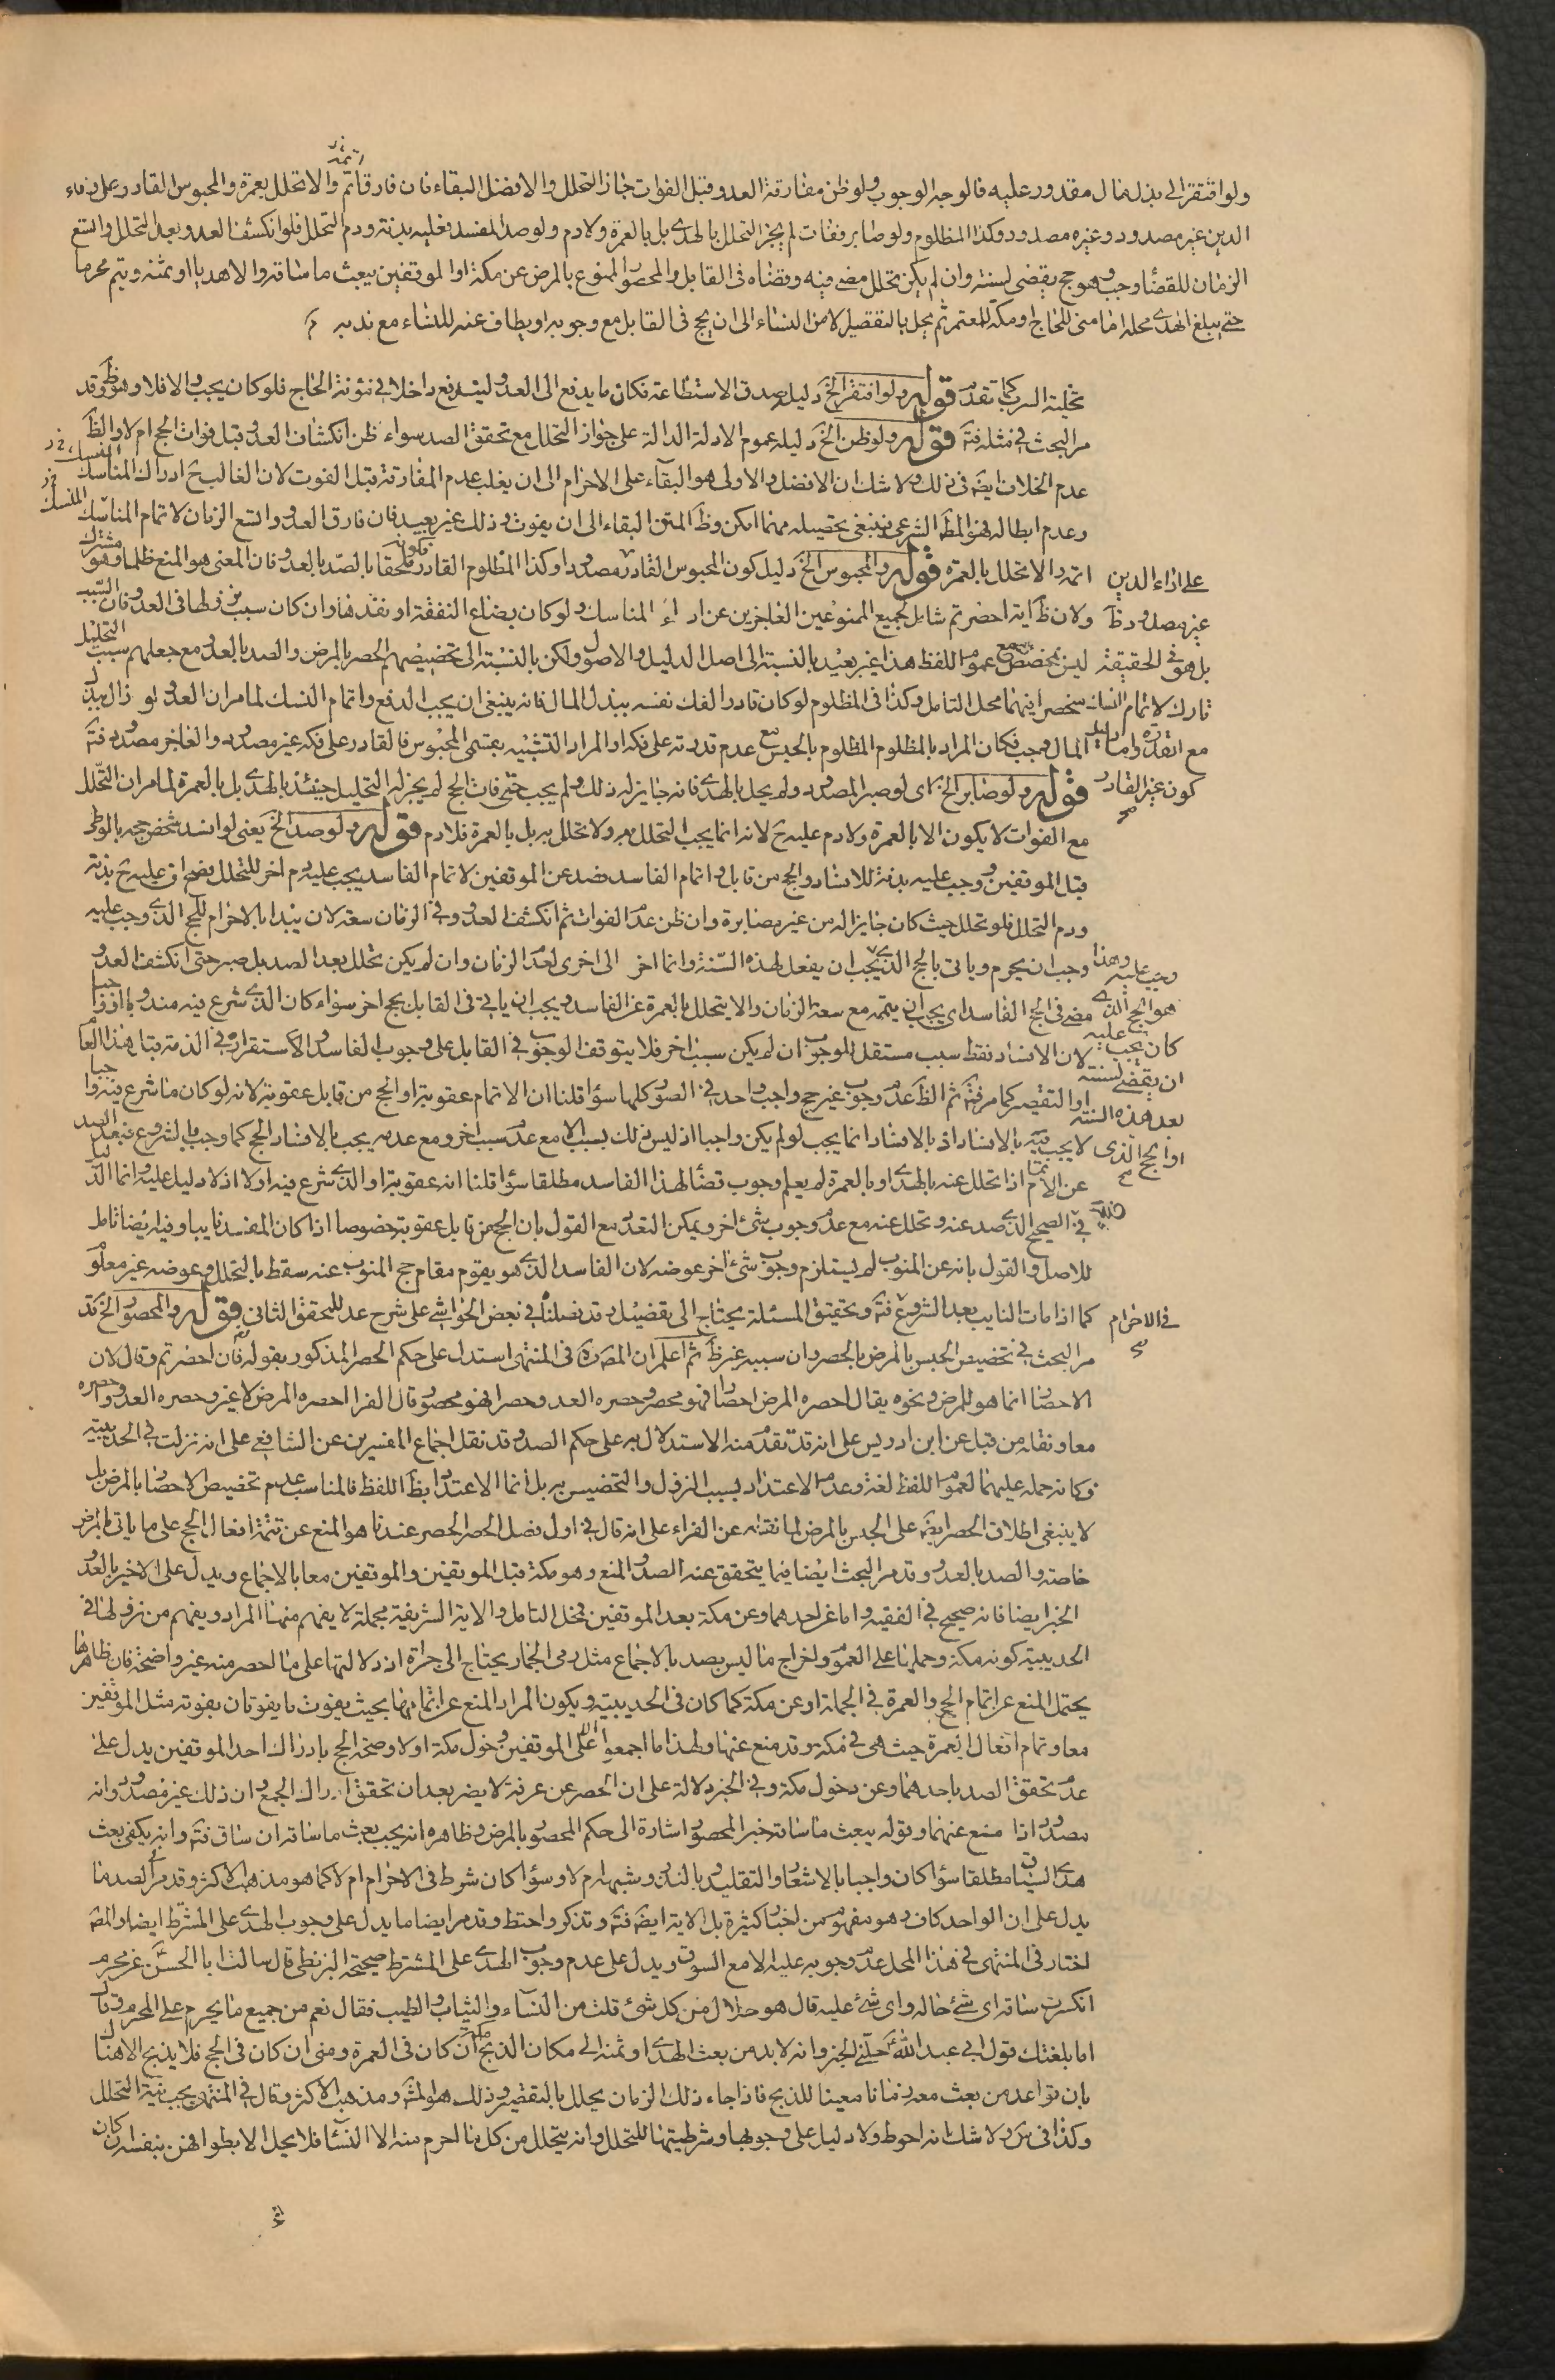 ولو افتقر الى بذل مال مقدور عليه فالوجه الوجوب ولو ظن مفارقة العدو قبل الفوات جاز التحلل والافضل البقاء فان فارق اتم والا تحلل بعمرة والمحبوس القادر على وفاء
الدين غير مصدود وغيره مصدود وكذا المظلوم ولو صابر وفات لم يجز التحلل بالهدى بل بالعمرة ولا دم ولو صد المفسد فعليه بدنة ودم التحلل فلو انكشف العدو بعد التحلل واتسع
الزمان للقضاء وجب وهو حج يقضى لسنته وان لم يكن تحلل مضى فيه وقضاه فى القابل والمحصور الممنوع بالمرض عن مكة او الموقفين يبعث ما ساقه والا هديا او ثمنه ويتم محرما
حتى يبلغ الهدى محله اما منى للحاج او مكة للمعتمر ثم يحل بالتقصير الا من النساء الى ان يحج فى القابل مع وجوبه او يطاف عنه للنساء مع ندبه
تخلية السرب كما تقدم قوله ولو افتقر الخ دليله صدق الاستطاعة فكان ما يدفع الى العدو ليندفع داخلا فى مؤنة الحاج فلو كان يجب والا فلا وهو ظ وقد
مر البحث فى مثله فت قوله ولو ظن الخ دليله عموم الادلة الدالة على جواز التحلل مع تحقق الصد سواء ظن انكشاف العدو قبل فوات الحج ام لا والظ
عدم الخلاف ايضا فى ذلك ولا شك ان الافضل والاولى هو البقاء على الاحرام الى ان يغلب عدم المفارقة قبل الفوت لان الغالب ح ادراك المناسك
وعدم ابطاله فهو المط الشرعى فينبغى تحصيله مهما امكن وظ المتن البقاء الى ان يفوت وذلك غير بعيد فان فارق العدو واتسع الزمان لاتمام المناسك
اتمه والا تحلل بالعمرة قوله والمحبوس الخ دليل كون المحبوس القادر مصدودا وكذا المظلوم القادر ملحقا بالصد بالعدو فان المعنى هو المنع ظلما وهو مشترك
ولان ظ اية احصرتم شامل لجميع الممنوعين العاجزين عن اداء المناسك ولو كان بضياع النفقة او نفدها وان كان سبب نزولها فى العدو فان السبب
ليس بمخصص مع عموم اللفظ هذا غير بعيد بالنسبة الى اصل الدليل والاصول ولكن بالنسبة الى تخصيصهم الحصر بالمرض والصد بالعدو مع جعلهم سبب التحليل
منحصرا فيهما محل التامل وكذا فى المظلوم لو كان قادرا لفك نفسه ببذل المال فانه ينبغى ان يجب الدفع واتمام النسك لما مر ان العدو لو زال ببذل
المال وجب فكان المراد بالمظلوم المظلوم بالحبس مع عدم قدرته على فكه او المراد التشبيه بمعنى المحبوس فالقادر على فكه غير مصدود والعاجز مصدود فت
قوله ولو صابر الخ اى لو صبر المصدود ولم يحل بالهدى فانه جايز له ذلك ولم يجب حتى فات الحج لم يجز له التحليل حينئذ بالهدى بل بالعمرة لما مر ان التحلل
مع الفوات لا يكون الا بالعمرة ولا دم عليه ح لانه انما يجب التحلل به ولا تحلل به بل بالعمرة فلا دم قوله ولو صد الخ يعنى لو افسد شخص حجه بالوطى
قبل الموقفين وجب عليه بدنة للافساد والحج من قابل واتمام الفاسد فصد عن الموقفين لاتمام الفاسد يجب عليه دم اخر للتحلل بفح اى عليه ح بدنة
ودم التحلل فلو تحلل حيث كان جايزا له من غير مصابرة وان ظن عدم الفوات ثم انكشف العدو وفى الزمان سعة لان يبدا بالاحرام للحج الذى وجب عليه
وجب ان يحرم وياتى بالحج الذى يجب ان يفعل لهذه السنة وانما اخر الى اخرى لعدم الزمان وان لم يكن تحلل بعد الصد بل صبر حتى انكشف العدو
مضى فى الحج الفاسد اى يجب ان يتمه مع سعة الزمان والا يتحلل بالعمرة عن الفاسد ويجب ان ياتى فى القابل بحج اخر سواء كان الذى شرع فيه مندوبا او واجبا
لان الافساد فقط سبب مستقل للوجوب ان لم يكن سببا اخر فلا يتوقف الوجوب فى القابل على وجوب الفاسد والاستقرار فى الذمة قبل هذا العام
او التقصير كما مر فت ثم الظ عدم وجوب غير حج واجب واحد فى الصور كلها سواء قلنا ان الاتمام عقوبة او الحج من قابل عقوبة لانه لو كان ما شرع فيه واجبا
لا يجب فيه بالافساد اذ بالافساد انما يجب لو لم يكن واجبا اذ ليس ذلك بسبب الا مع عدم سبب اخر ومع عدمه يجب بالافساد الحج كما وجب بالشروع فبعد الصد
عن الاتمام اذا تحلل عنه بالهدى او بالعمرة لم يعلم وجوب قضاء لهذا الفاسد مطلقا سواء قلنا انه عقوبة او الذى شرع فيه اولا اذ لا دليل عليه وانما الدليل
فى الصحيح الذى صد عنه وتحلل عنه مع عدم وجوب شئ اخر ويمكن التعدد مع القول بان الحج من قابل عقوبة خصوصا اذا كان المفسد نايبا وفيه ايضا تامل
للاصل والقول بانه عن المنوب لم يستلزم وجوب شئ اخر عوضه لان الفاسد الذى هو يقوم مقام حج المنوب عنه سقط بالتحلل وعوضه غير معلوم
كما اذا مات النايب بعد الشروع فت وتحقيق المسئلة يحتاج الى تفصيل وقد فصلنا فى بعض الحواشى على شرح عد للمحقق الثانى قوله والمحصور الخ قد
مر البحث فى تخصيص الحبس بالمرض بالحصر وان سببه غير ظ ثم اعلم ان المص ره فى المنتهى استدل على حكم الحصر المذكور بقوله فان احصرتم وقال لان
الاحصار انما هو للمرض ونحوه يقال احصره المرض احصارا فهو محصر وحصره العدو حصرا فهو محصور قال الفرا احصره المرض لا غير وحصره العدو واحصره
معا ونقله من قبل عن ابن ادريس على انه قد تقدم منه الاستدلال به على حكم الصد وقد نقل اجماع المفسرين عن الشافعى على انه نزلت فى الحديبية
فكانه حمله عليهما لعموم اللفظ لغة وعدم الاعتداد بسبب النزول والتخصيص به بل انما الاعتداد بظ اللفظ فالمناسب عدم تخصيص الاحصار بالمرض بل
لا ينبغى اطلاق الحصر ايضا على الحبس بالمرض لما نقله عن الفراء على انه قال فى اول فصل الحصر الحصر عندنا هو المنع عن تتمة افعال الحج على ما ياتى بالمرض
خاصة والصد بالعدو وقد مر البحث ايضا فيما يتحقق عنه الصد والمنع وهو مكة قبل الموقفين والموقفين معا بالاجماع ويدل على الاخير بالعدو
الخبر ايضا فانه صحيح فى الفقيه واما عن احدهما وعن مكة بعد الموقفين فمحل التامل والاية الشريفة مجملة لا يفهم منها المراد ويفهم من نزولها فى
الحديبية كونه مكة وحملها على العموم واخراج ما ليس بصد بالاجماع مثل رمى الجمار يحتاج الى جراة اذ دلالتها على ما الحصر منه غير واضحة فان ظاهرها
يحتمل المنع عن اتمام الحج والعمرة فى الجملة او عن مكة كما كان فى الحديبية ويكون المراد المنع عن اتمامها بحيث يفوت ما يفوتان بفوته مثل الموقفين
معا وتمام افعال العمرة حيث هى فى مكة وقد منع عنها ولهذا ما اجمعوا الا على الموقفين ودخول مكة اولا وصحة الحج بادراك احد الموقفين يدل على
عدم تحقق الصد باحدهما وعن دخول مكة وفى الخبر دلالة على ان الحصر عن عرفة لا يضر بعد ان تحقق ادراك الجمع وان ذلك غير مصدود وانه
مصدود اذا منع عنهما وقوله يبعث ما ساقه خبر المحصور اشارة الى حكم المحصور بالمرض وظاهره انه يجب بعث ما ساقه ان ساق فت وانه يكفى بعث
هدى السياق مطلقا سواء كان واجبا بالاشعار والتقليد وبالنذر وشبهه ام لا وسواء كان شرط فى الاحرام ام لا كما هو مذهب الاكثر وقد مر فى الصد ما
يدل على ان الواحد كاف وهو مفهوم من اخبار كثيرة بل الاية ايضا فت وتذكر واحتط وقد مر ايضا ما يدل على وجوب الهدى على المشترط ايضا والمص
اختار فى المنتهى فى هذا المحل عدم وجوبه عليه الا مع السوق ويدل على عدم وجوب الهدى على المشترط صحيحة البزنطى قال سالت ابا الحسن عن محرم
انكسرت ساقه اى شئ حاله واى شئ عليه قال هو حلال من كل شئ قلت من النساء والثياب والطيب فقال نعم من جميع ما يحرم على المحرم وقال
اما بلغك قول ابى عبد الله حلنى الخبر وانه لا بد من بعث الهدى او ثمنه الى مكان الذبح مكة ان كان فى العمرة ومنى ان كان فى الحج فلا يذبح الا هناك
بان تواعد من بعث معه زمانا معينا للذبح فاذا جاء ذلك الزمان يحلل بالتقصير وذلك هو المش ومذهب الاكثر وقال فى المنتهى يجب نية التحلل
وكذا فى س ولا شك انه احوط ولا دليل على وجوبها وشرطيتها للتحلل وانه يتحلل من كل ما احرم منه الا النساء فلا يحل الا بطوافهن بنفسه ان كان
على اداء الدين
غير مصدود ظ
بل هو فى الحقيقة
تارك لاتمام المناسك
كون غير القادر
وجب عليه وهذا
هو الحج الذى
كان يجب عليه
ان يقضى لسنته
بعد هذه السنة
او الحج الذى
فى الاحرام